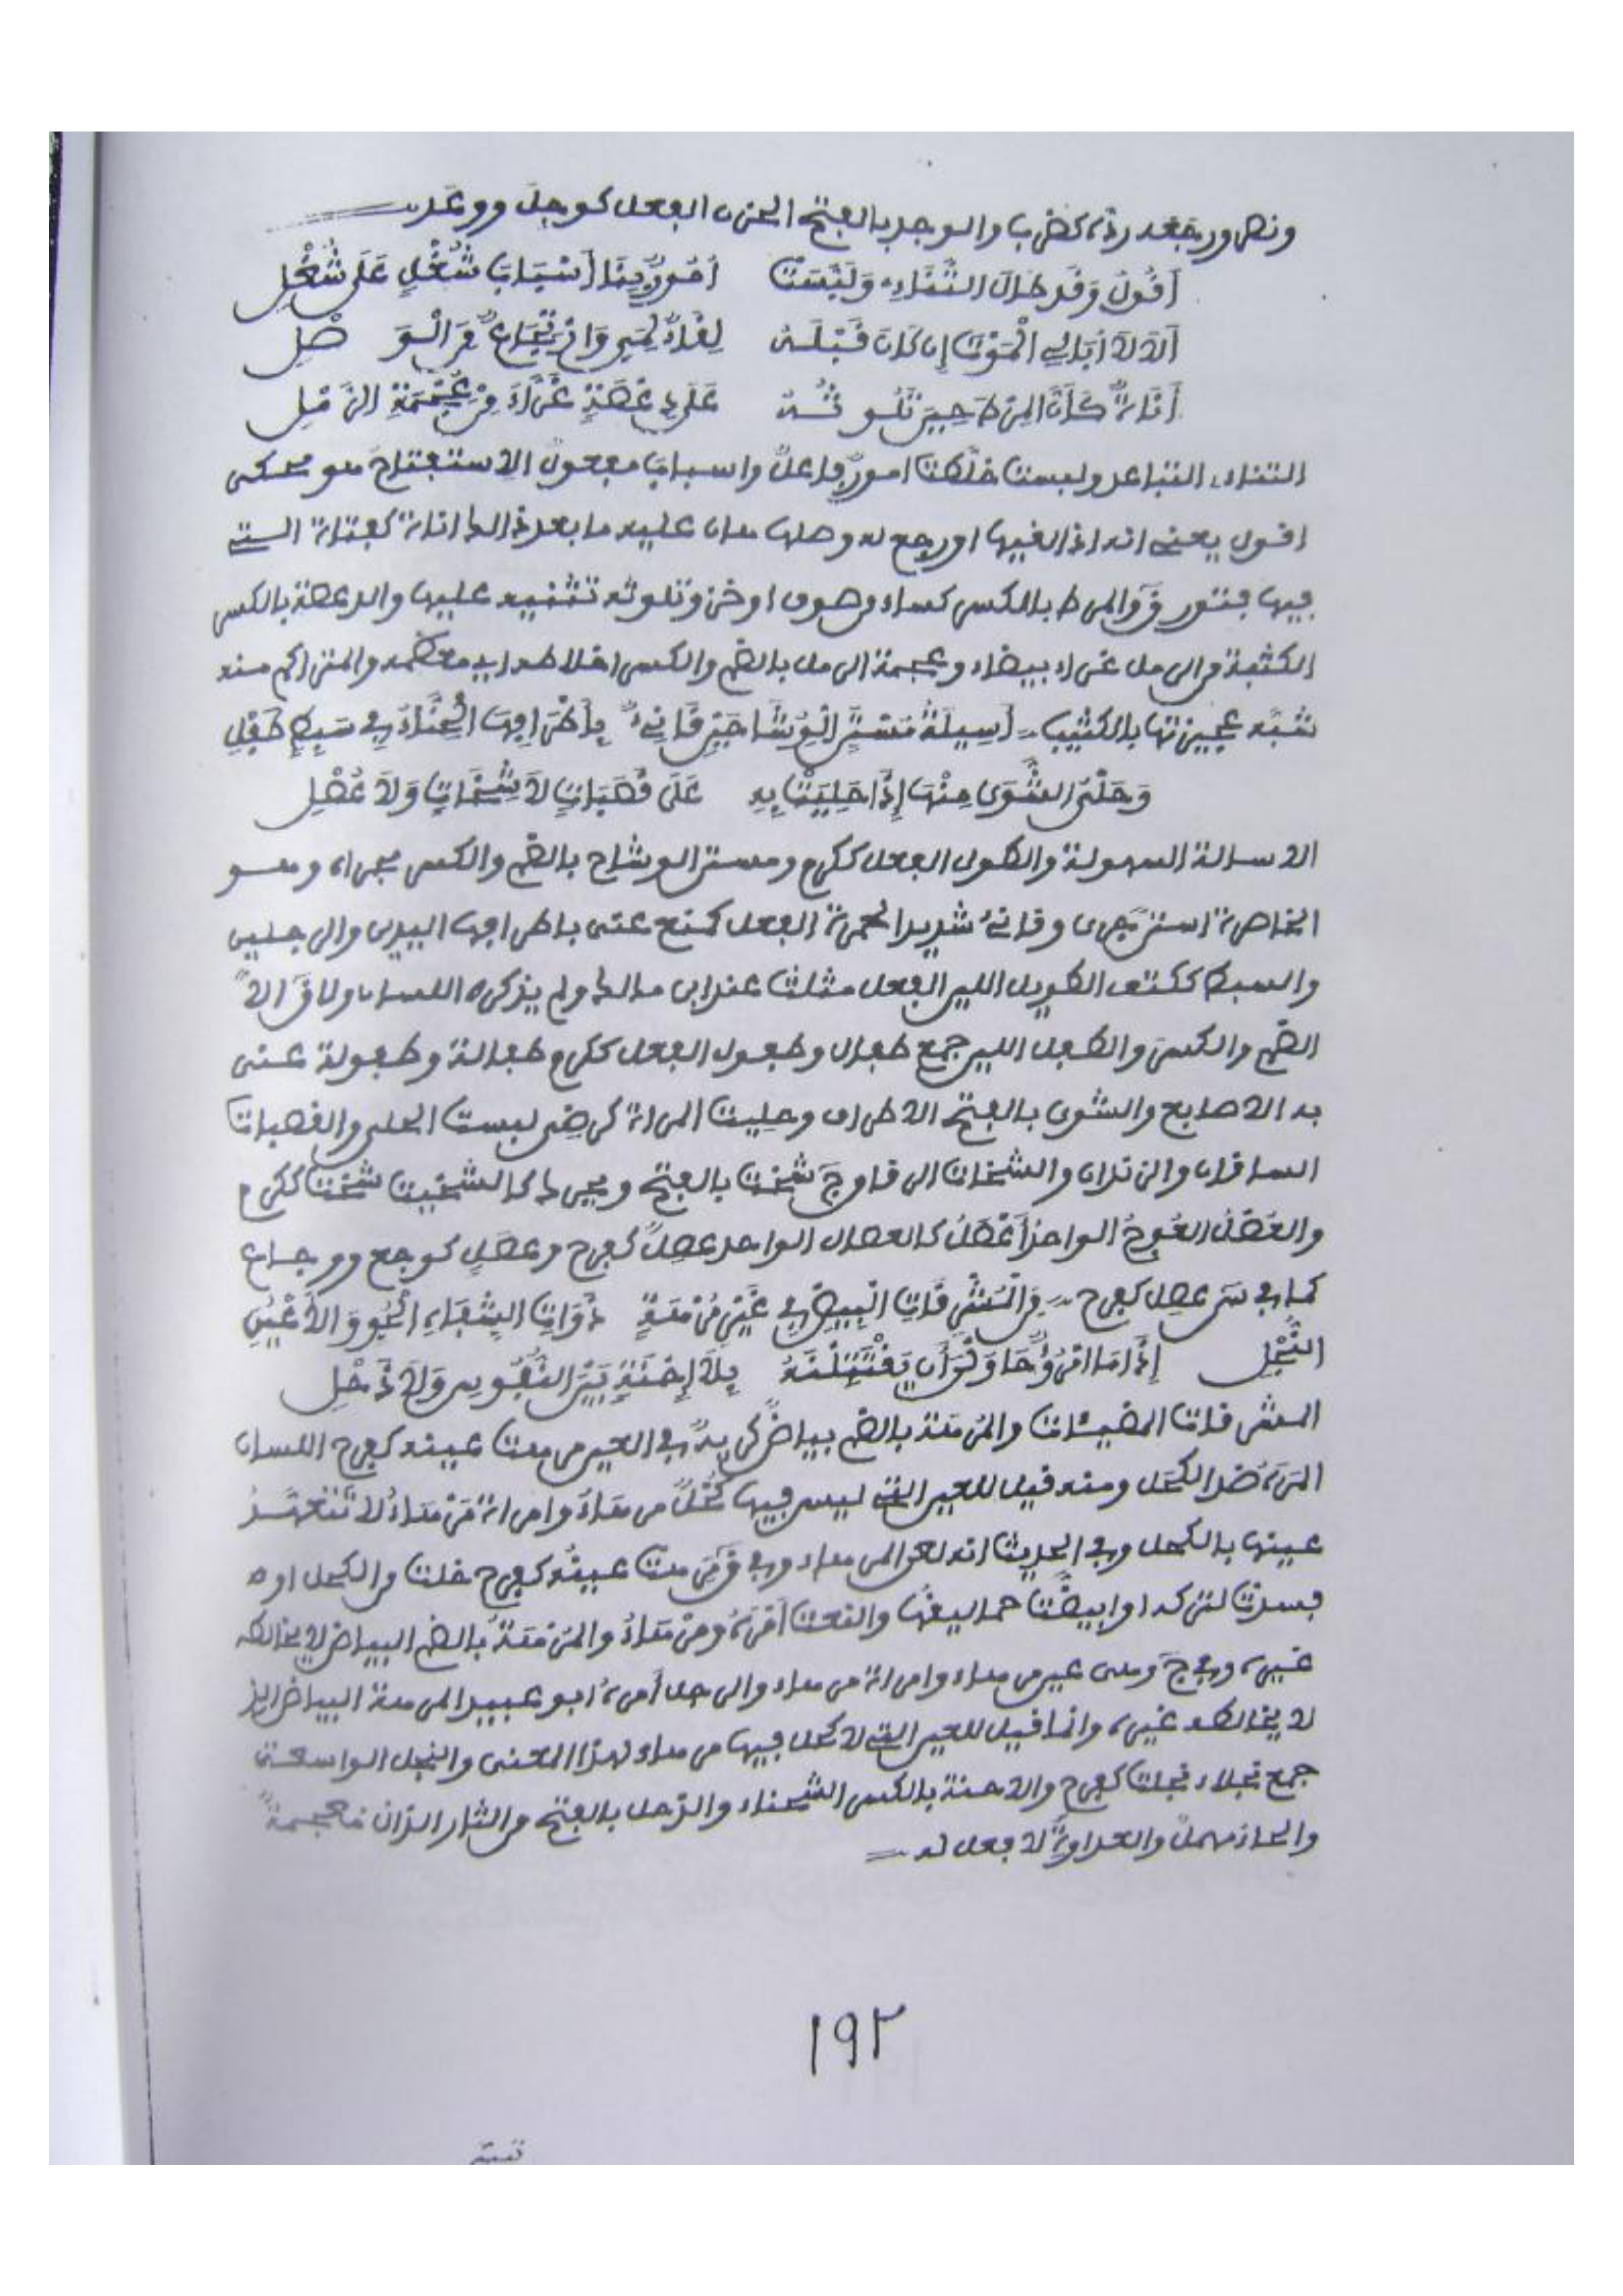 ونصر ورجع درة كضرب والوجد بالفتح الحزن الفعل كوجل ووعد
أَقُولُ وَقَد طَالَ التَّنَاءِي وَلَبَّسَتْ أُمُورٌ بِنَا أَسْبَابَ شُغْلٍ عَلَى شُغْلِ
أَلَا لَا أُبَالِي الْمَوْتَ إِن كَانَ قَبْلَهُ لِقَاءٌ لِمَيٍّ وَارْتِجَاعٌ مِنَ الْوَصْلِ
أَنَاةٌ كَأَنَّ الْمِرْطَ حِينَ تَلُوثُهُ عَلَى دِعْصَةٍ غَرَّاءَ مِنْ عُجْمَةِ الرَّمْلِ
التناءي التباعد ولبست خلطت امورٌ فاعلٌ واسباب مفعولٌ الاستفتاح هو محكى
اقول يعنى انه اذا لقيها او رجع له وصلها هان عليه ما بعد ذالك اناة كقناة التى
فيها فتور ق والمرط بالكسر كساء من صوف او خز وتلوثه تثنيه عليها والدعصة بالكسر
الكثبة من الرمل غراء بيضاء وعجمة الرمل بالضم والكسر اختلاطه اى معظمه والمتراكم منه
شبه عجيزتها بالكثيب أَسِيلَةُ مُسْتَنِّ الْوِشَاحَيْنِ قَانِئٌ بِأَطْرَافِهَا الْحِنَّاءُ فِي سَبِطٍ طَفْلِ
وَحَلْيُ الشَّوَى مِنْهَا إِذَا حَلِيَتْ بِهِ عَلَى قَصَبَاتٍ لَا شِخَاتٍ وَلَا عُصْلِ
الاسالة السهولة والطول الفعل ككرم ومستن الوشاح بالضم والكسر مجراه وهو
الخاصرة استن جرى وقانئٌ شديد الحمرة الفعل كمنع عنى باطرافها اليدين والرجلين
والسبط ككتف الطويل اللين الفعل مثلث عند ابن مالك ولم يذكره اللسان ولا ق الا
الضم والكسر والطفل اللين جمع طفال وطفول الفعل ككرم طفالة وطفولة عنى
به الاصابع والشوى بالفتح الاطراف وحليت المراة كرضى لبست الحلى والقصبات
الساقان والزندان والشخات الرقاق ج شخت بالفتح ويحرك كالشخيت شخت ككرم
والعُصْل العُوجُ الواحد أعصل كالعصال الواحد عصِلٌ كفرح وعصل كوجع ووجاع
كما فى س عصل كفرح مِنَ الْمُشْرِقَاتِ الْبِيضِ فِي غَيْرِ مُرْهَةٍ ذَوَاتِ الشِّفَاهِ الْحُوِّ وَالْأَعْيُنِ
النُّجْلِ إِذَا مَا امْرُؤٌ حَاوَلْنَ أَن يَقْتَتِلْنَهُ بِلَا إِحْنَةٍ بَيْنَ النُّفُوسِ وَلَا ذَحْلِ
المشرقات المضيئات والمرهة بالضم بياض كريهٌ فى العين مرهت عينه كفرح اللسان
المره ضد الكحل ومنه قيل للعين التى ليس فيها كحلٌ مرهاء وامراة مرهاءُ لا تتعهد
عينها بالكحل وفى الحديث انه لعن المرهاء وفى ق مرهت عينه كفرح خلت من الكحل او
فسدت لتركه او ابيضت حماليقها والنعت أمره ومرهاءُ والمرهةُ بالضم البياض لا يخالطه
غيره وفى ج وهى عين مرهاء وامراة مرهاء والرجل أمره ابو عبيد المرهة البياض الذ
لا يخالطه غيره وانما قيل للعين التى لا كحل فيها مرهاء لهذا المعنى والنجل الواسعة
جمع نجلاء نجلت كفرح والاحنة بالكسر الشحناء والذحل بالفتح من الثار الذال معجمةٌ
والحاء مهملٌ والعداوةٌ لا فعل له
١٩٢